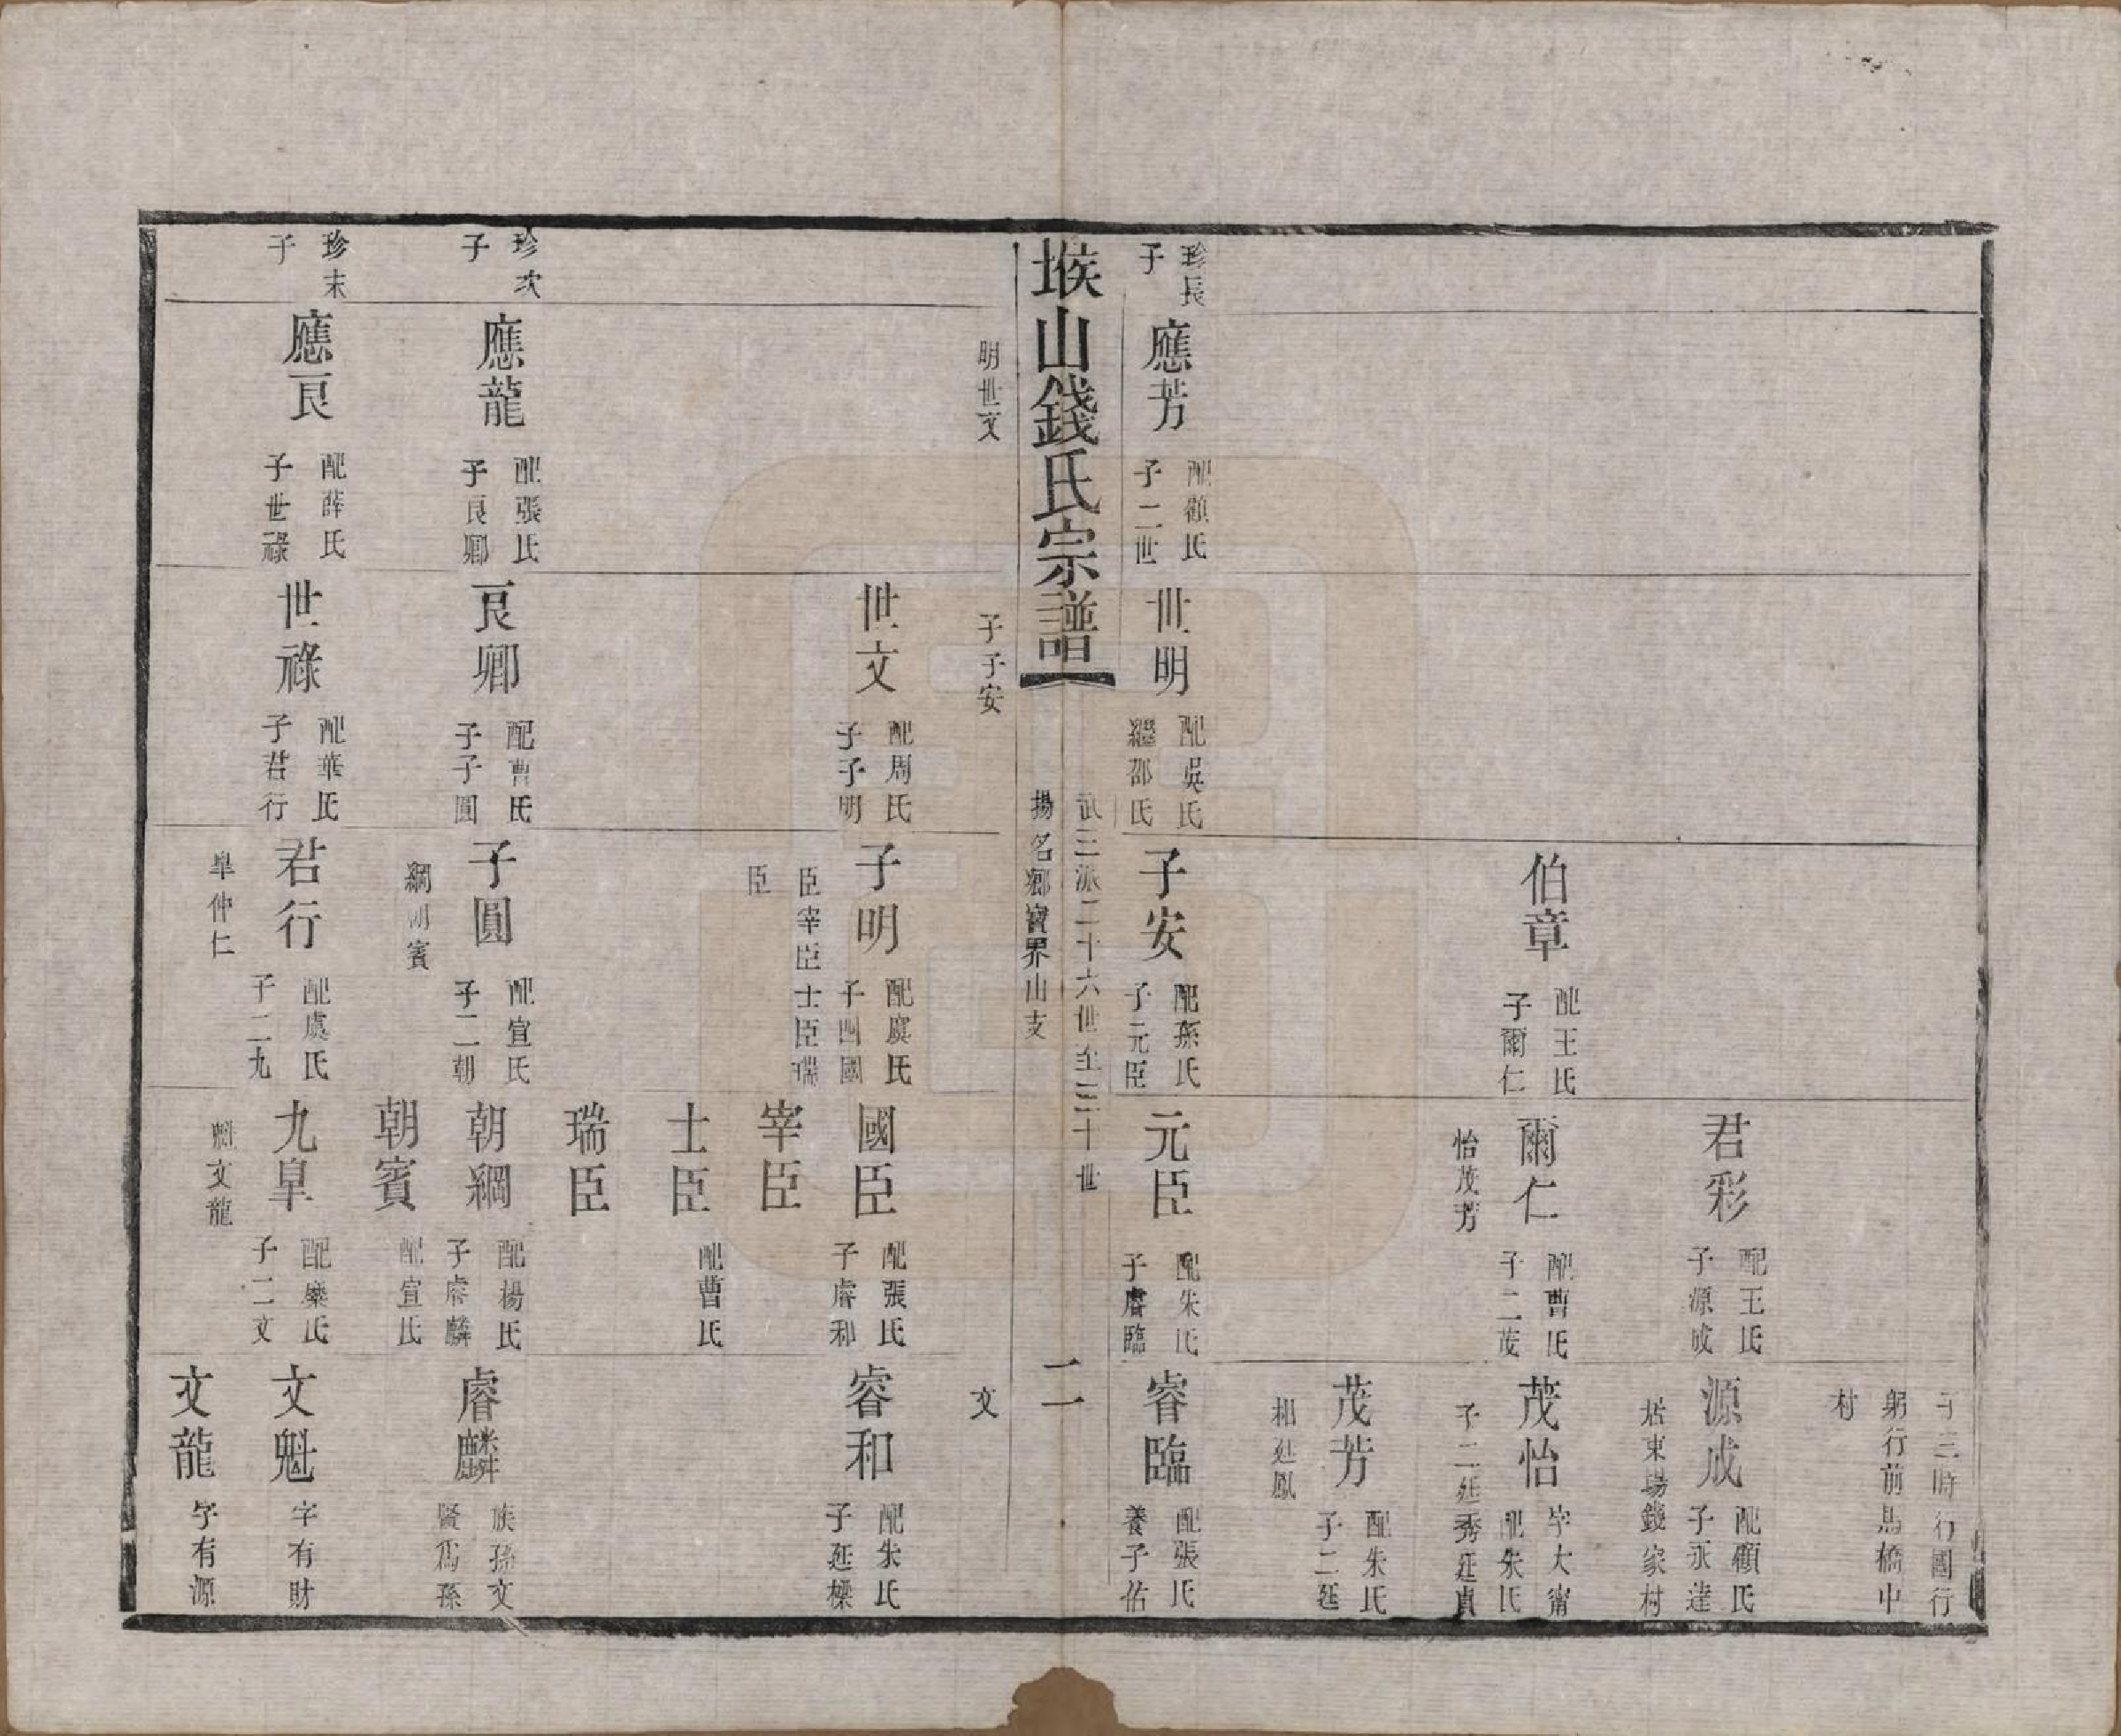 子三時行國行
躬行前馬橋中
村
君彩
配王氏
子源成
源成
配顧氏
子永達
居東場錢家村
伯章
配王氏
子爾仁
爾仁
配曹氏
子二茂
怡茂芳
茂怡
字大甯
配朱氏
子二廷秀廷貞
茂芳
配朱氏
子二廷
相廷鳳
珍長
子
應芳
配顧氏
子二世
明世文
世明
配吳氏
繼邵氏
子子安
子安
配孫氏
子元臣
元臣
配朱氏
子睿臨
睿臨
配張氏
養子佑
文
堠山錢氏宗譜
武三派二十六世至三十世
揚名鄉寶界山支
二
世文
配周氏
子子明
子明
配虞氏
子四國
臣宰臣士臣瑞
臣
國臣
配張氏
子睿和
睿和
配朱氏
子廷樑
宰臣
士臣
配曹氏
瑞臣
珍次
子
應龍
配張氏
子良卿
良卿
配曹氏
子子圓
子圓
配宣氏
子二朝
綱朝賓
朝綱
配楊氏
子睿麟
睿麟
族孫文
賢爲孫
朝賓
配宣氏
珍末
子
應良
配薛氏
子世祿
世祿
配華氏
子君行
君行
配虞氏
子二九
皐仲仁
九皐
配欒氏
子二文
魁文龍
文魁
字有財
文龍
字有源